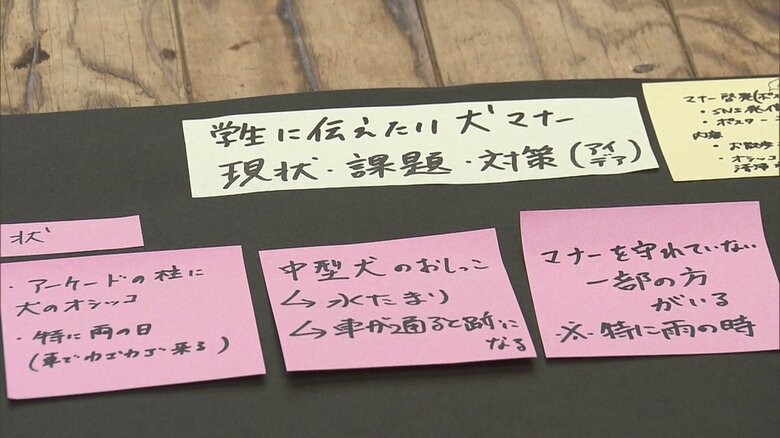 学生に伝えたい犬マナー
現状・課題・対策(アイデア)
マナー啓発(ポ
・SNS発信
・ポスター
内容
・お散歩
・オシッコ
状
・アーケードの柱に
犬のオシッコ
・特に雨の日
(車でわざわざ来る)
中型犬のおしっこ
↳水たまり
↳車が通ると跡に
なる
マナーを守れていない
一部の方
がいる
※・特に雨の時